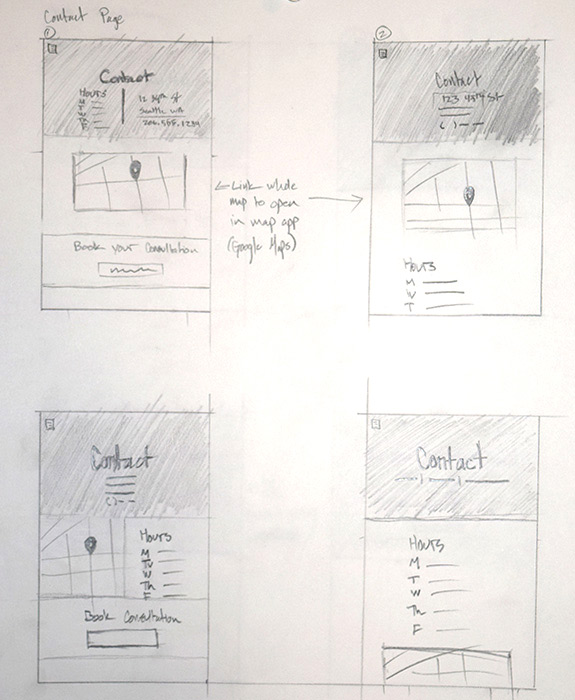 Contact Page
①
Contact
Hours
M
T
W
Th
F
12 34th St
Seattle WA
206.555.1234
Book your Consultation
← Link whole
map to open
in map app
(Google Maps)
②
Contact
123 45th St
( ) - -
Hours
M
W
T
Contact
( ) - -
Hours
M
Tu
W
Th
F
Book Consultation
Contact
Hours
M
T
W
Th
F